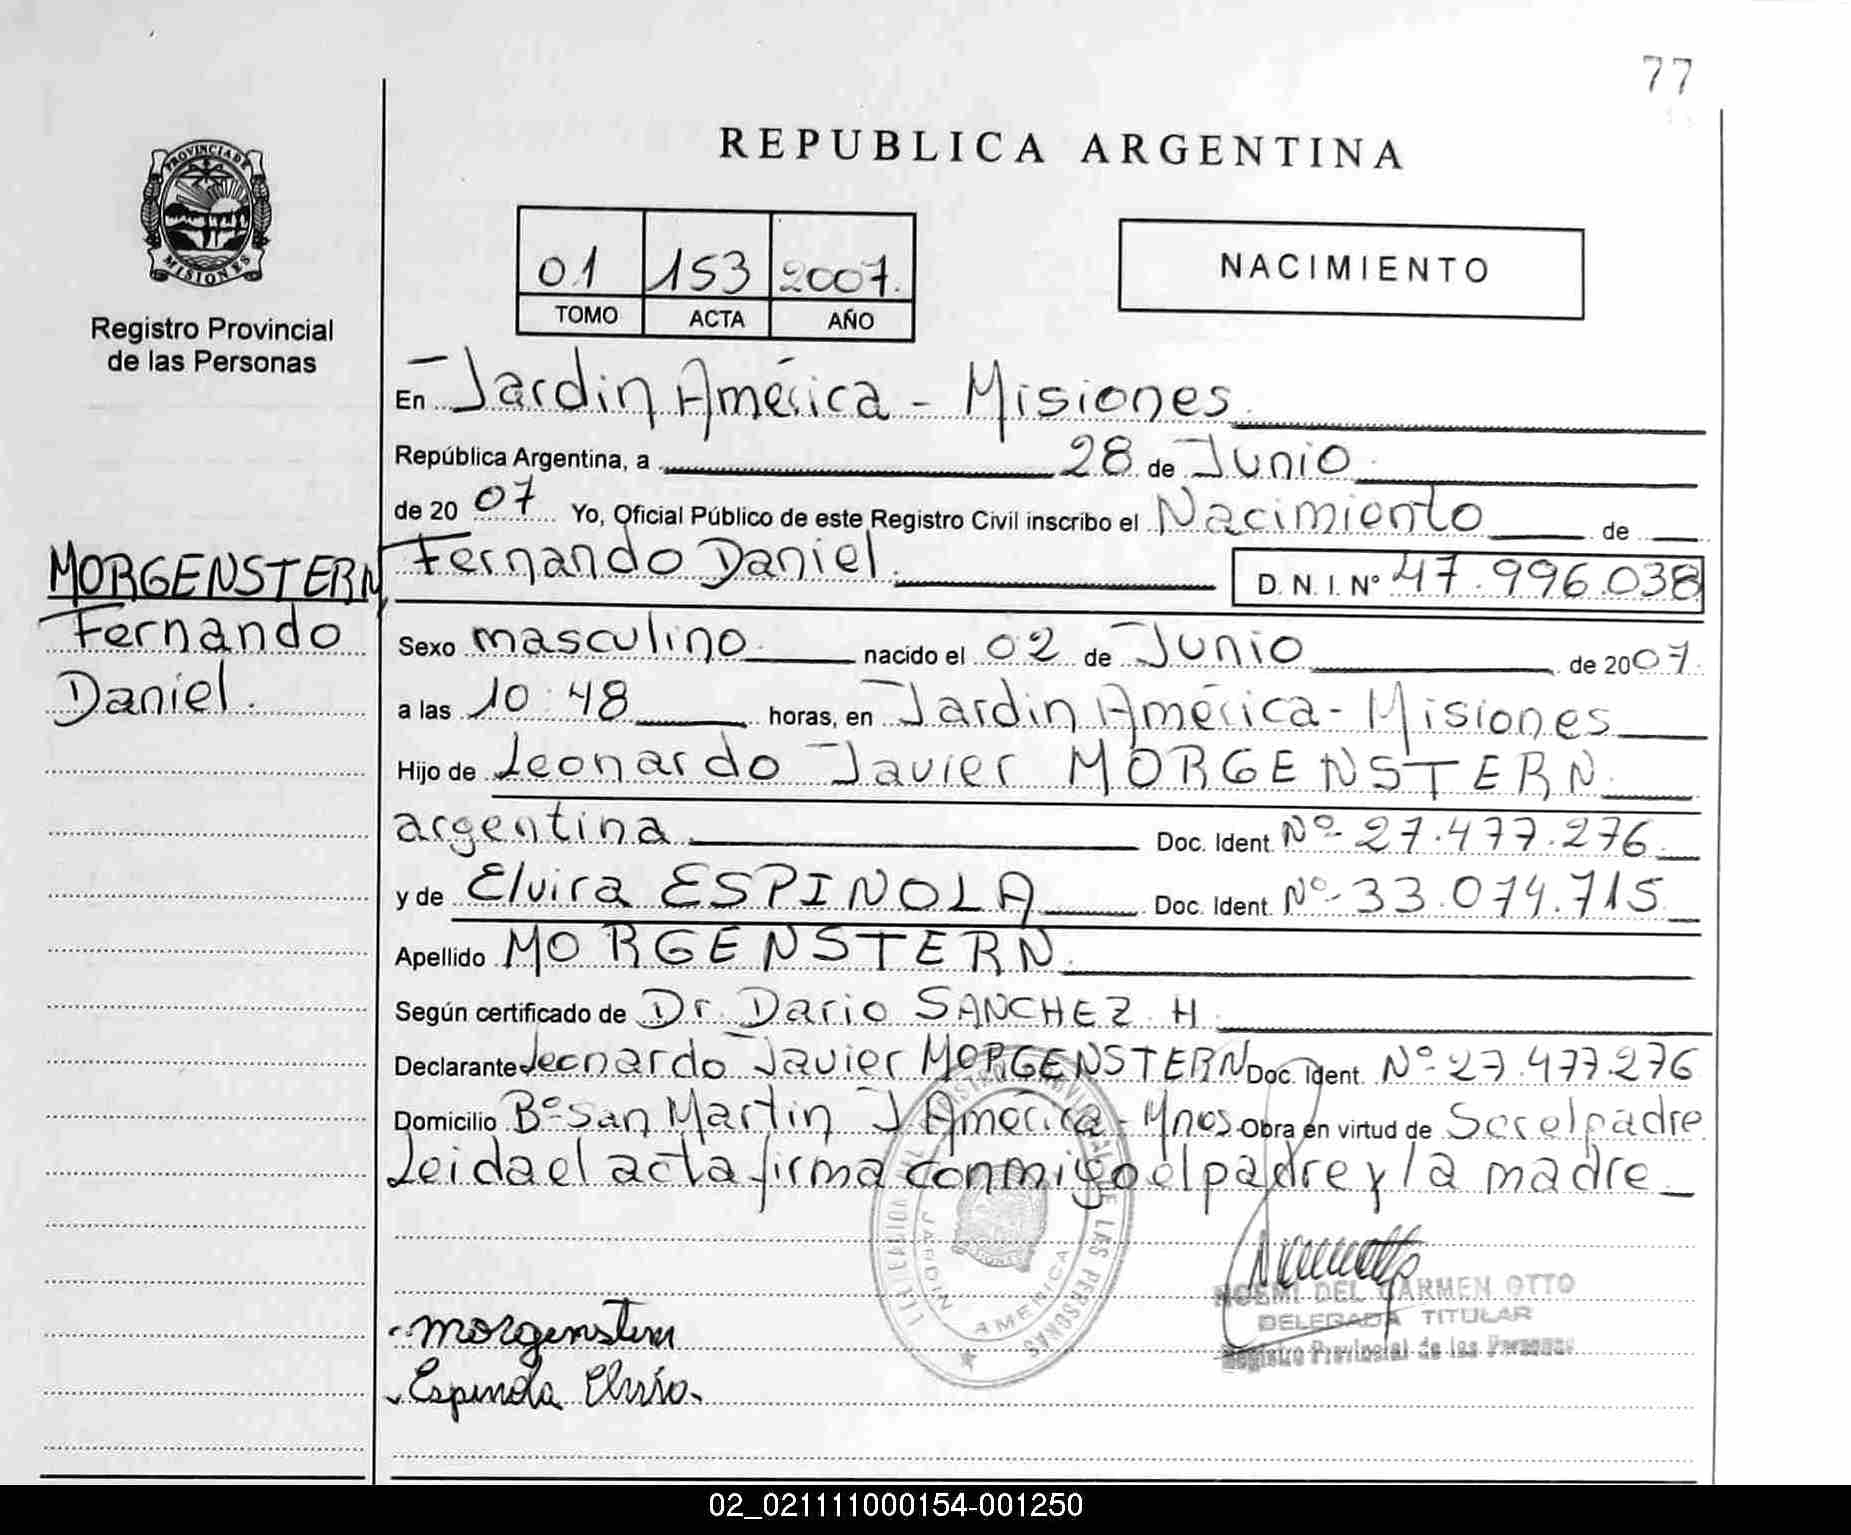 77
REPUBLICA ARGENTINA
PROVINCIA DE MISIONES
Registro Provincial
de las Personas
01 153 2007.
TOMO ACTA AÑO
NACIMIENTO
En Jardin América - Misiones
República Argentina, a 28 de Junio
de 20 07 Yo, Oficial Público de este Registro Civil inscribo el Nacimiento de
MORGENSTERN
Fernando
Daniel.
Fernando Daniel. D. N. I. Nº 47.996.038
Sexo masculino nacido el 02 de Junio de 2007.
a las 10:48 horas, en Jardin América - Misiones
Hijo de Leonardo Javier MORGENSTERN
argentina Doc. Ident. Nº 27.477.276
y de Elvira ESPINOLA Doc. Ident. Nº 33.074.715
Apellido MORGENSTERN
Según certificado de Dr. Dario SANCHEZ H
Declarante Leonardo Javier MORGENSTERN Doc. Ident. Nº 27.477.276
Domicilio Bº San Martin J. América - Mnes Obra en virtud de Ser el padre
Leida el acta firma conmigo el padre y la madre
JARDIN AMERICA
NOEMI DEL CARMEN OTTO
DELEGADA TITULAR
Registro Provincial de las Personas
Morgenstern
Espinola Elvira
02_021111000154-001250